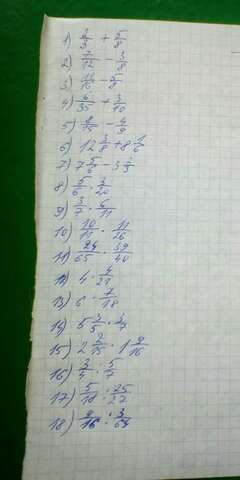 1) 2/3 + 5/8
2) 7/12 - 3/8
3) 11/16 - 5/8
4) 4/35 + 3/10
5) 8/15 - 4/9
6) 12 3/8 + 8 1/6
7) 7 5/6 - 3
8) 5/6 · 3/20
9) 3/7 · 6/11
10) 10/11 · 11/26
11) 24/65 · 39/40
12) 4 · 4/21
13) 6 · 7/18
14) 5 3/5 ·
15) 2 2/15 · 1 9/16
16) 3/4 : 5/7
17) 5/18 : 25/27
18) 9/16 : 3/64